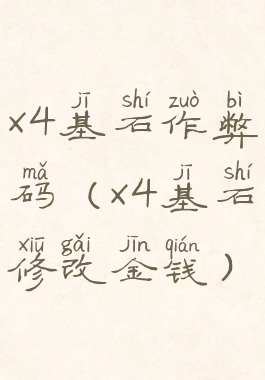 jī shí zuò bì
x4基石作弊
mǎ jī shí
码（x4基石
xiū gǎi jīn qián
修改金钱）